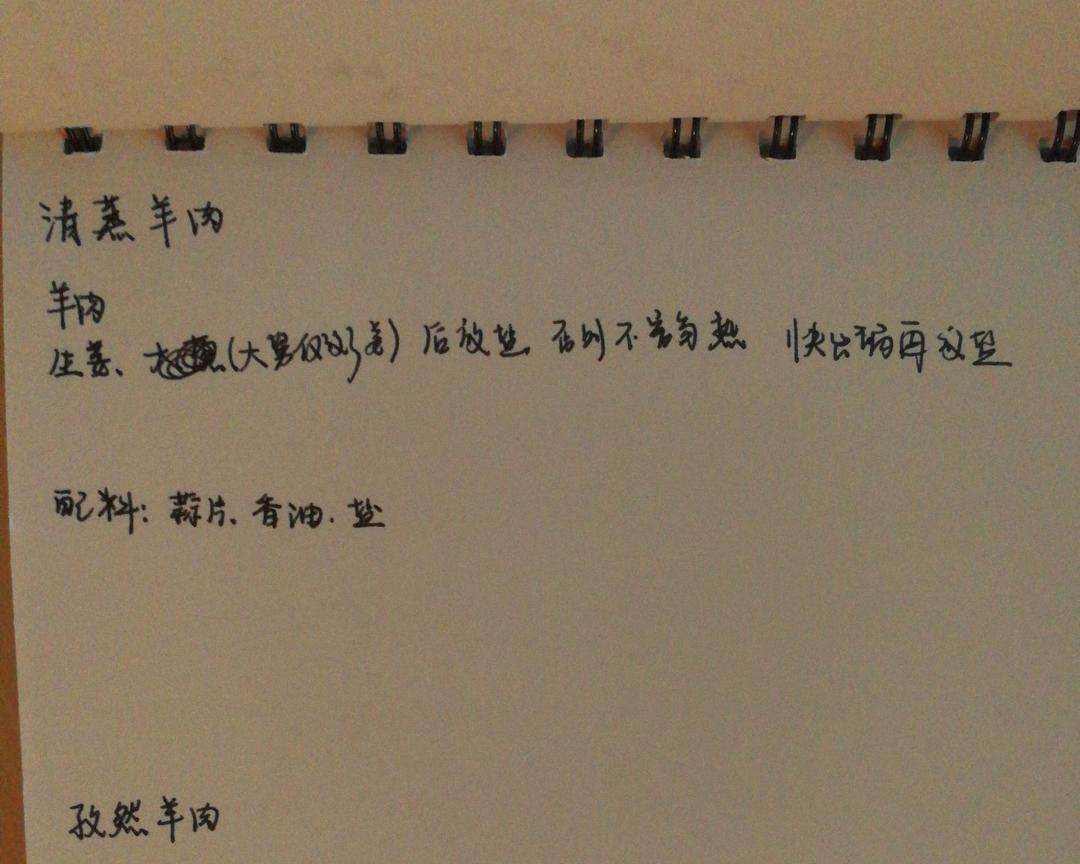 清蒸羊肉
羊肉
生姜、(大 后放盐 否则不容易熟 快出锅再放盐
配料：蒜片、香油、盐
孜然羊肉